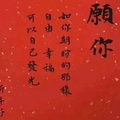 願你
如你期的那樣
自由 幸福
可以自己發光